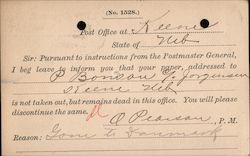 (No. 1528.)
Post Office at Keene
State of Neb
Sir: Pursuant to instructions from the Postmaster General,
I beg leave to inform you that your paper, addressed to
P Bonsau G. Jorgensen
Keene Neb
is not taken out, but remains dead in this office. You will please
discontinue the same.
O Pearson, P. M.
Reason: Gone to Danmark